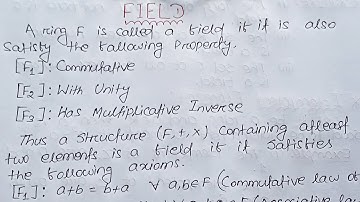 FIELD
A ring F is called a field if it is also
Satisfy the following Property.
[F₁]: Commutative
[F₂]: With Unity
[F₃]: Has Multiplicative Inverse
Thus a Structure (F,+,×) Containing atleast
two elements is a field if it satisfies
the following axioms.
[F₁]: a+b = b+a ∀ a,b∈F (Commutative law of